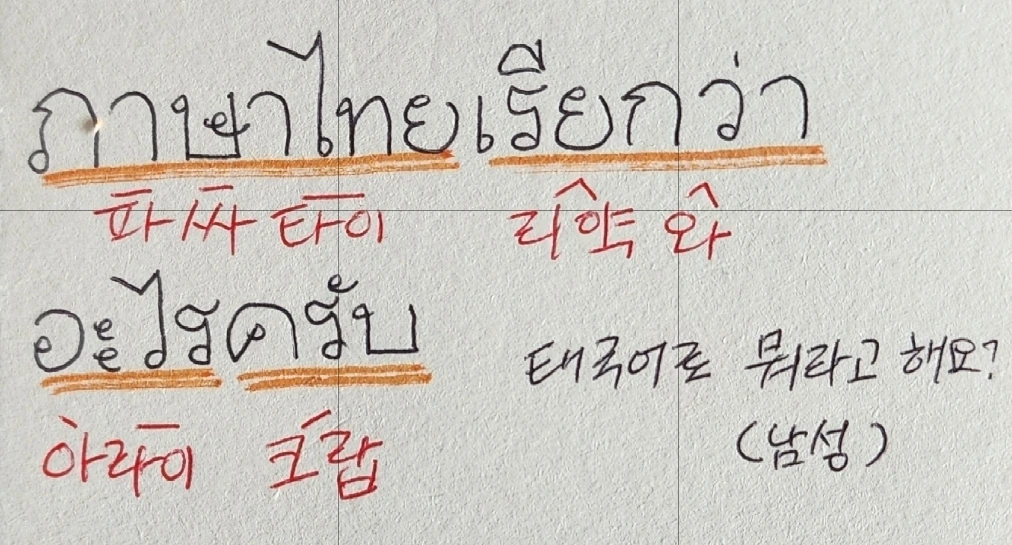 ภาษาไทยเรียกว่า
파 싸 타이 리약 와
อะไรครับ
태국어로 뭐라고 해요?
(남성)
아라이 크랍